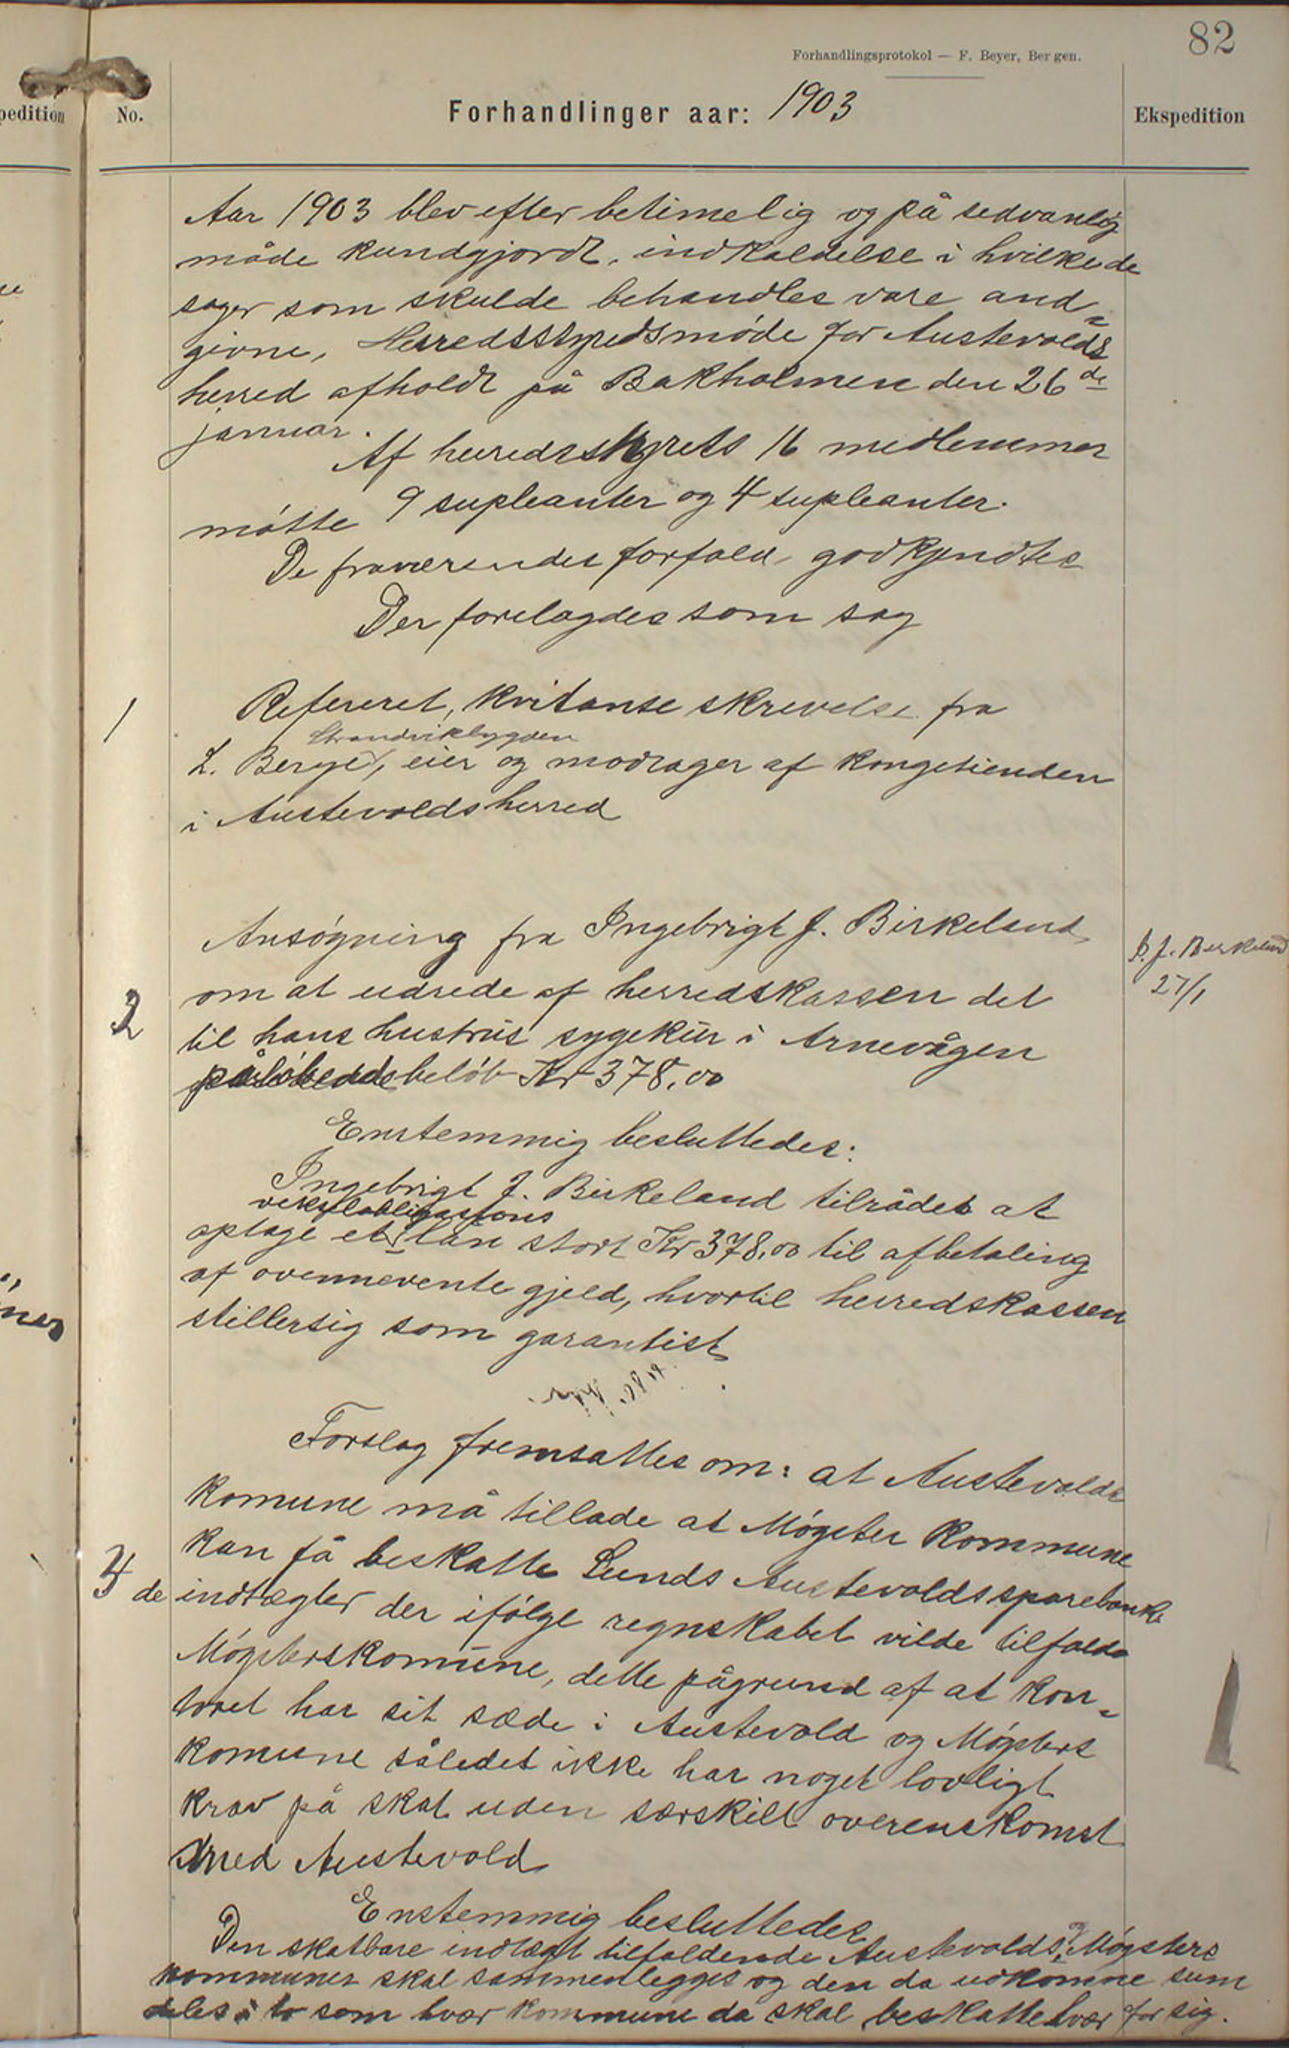 82
Forhandlingsprotokol — F. Beyer, Bergen.
pedition
No.
Forhandlinger aar: 1903
Ekspedition
Aar 1903 blev efter betimelig og på sedvanlig
måde kundgjordt, indkaldelse i hvilke de
sager som skulde behandles vare and-
givne, Herredsstyredsmøde for Austevolds
herred afholdt på Bakholmen den 26de
januar.
Af herredsstyrets 16 medlemmer
møtte 9 supleanter og 4 supleanter.
De fraværendes forfald godkjendtes
Der forelagdes som sag
1
Refereret, kvitanse skrevelse fra
Strandvikbygden
L. Berge, eier og modtager af kongetienden
i Austevoldsherred
2
Ansøgning fra Ingebrigt J. Birkeland
om at udrede af herredskassen det
til hans hustrus sygekur i Arnevågen
påløbende beløb Kr 378.00
I. J. Birkeland
27/1
Enstemmig besluttedes:
Ingebrigt J. Birkeland tilrådes at
vekselobligasjons
optage et lån stort Kr 378.00 til afbetaling
af ovennevente gjeld, hvortil herredskassen
stiller sig som garantist
Forslag fremsattes om: at Austevolds
komune må tillade at Møgster kommune
kan få beskatte Sunds Austevolds sparebanks
de indtægter der ifølge regnskabet vilde tilfalde
Møgsterskomune, dette pågrund af at kon-
toret har sit sæde i Austevold og Møgsters
komune således ikke har noget lovligt
krav på skat uden særskilt overenskomst
med Austevold
Enstemmig besluttedes
Den skatbare indtægt tilfaldende Austevolds og Møgsters
kommuner skal sammenlegges og den da udkomne sum
deles i to som hvær kommune da skal beskatte hvær for sig.